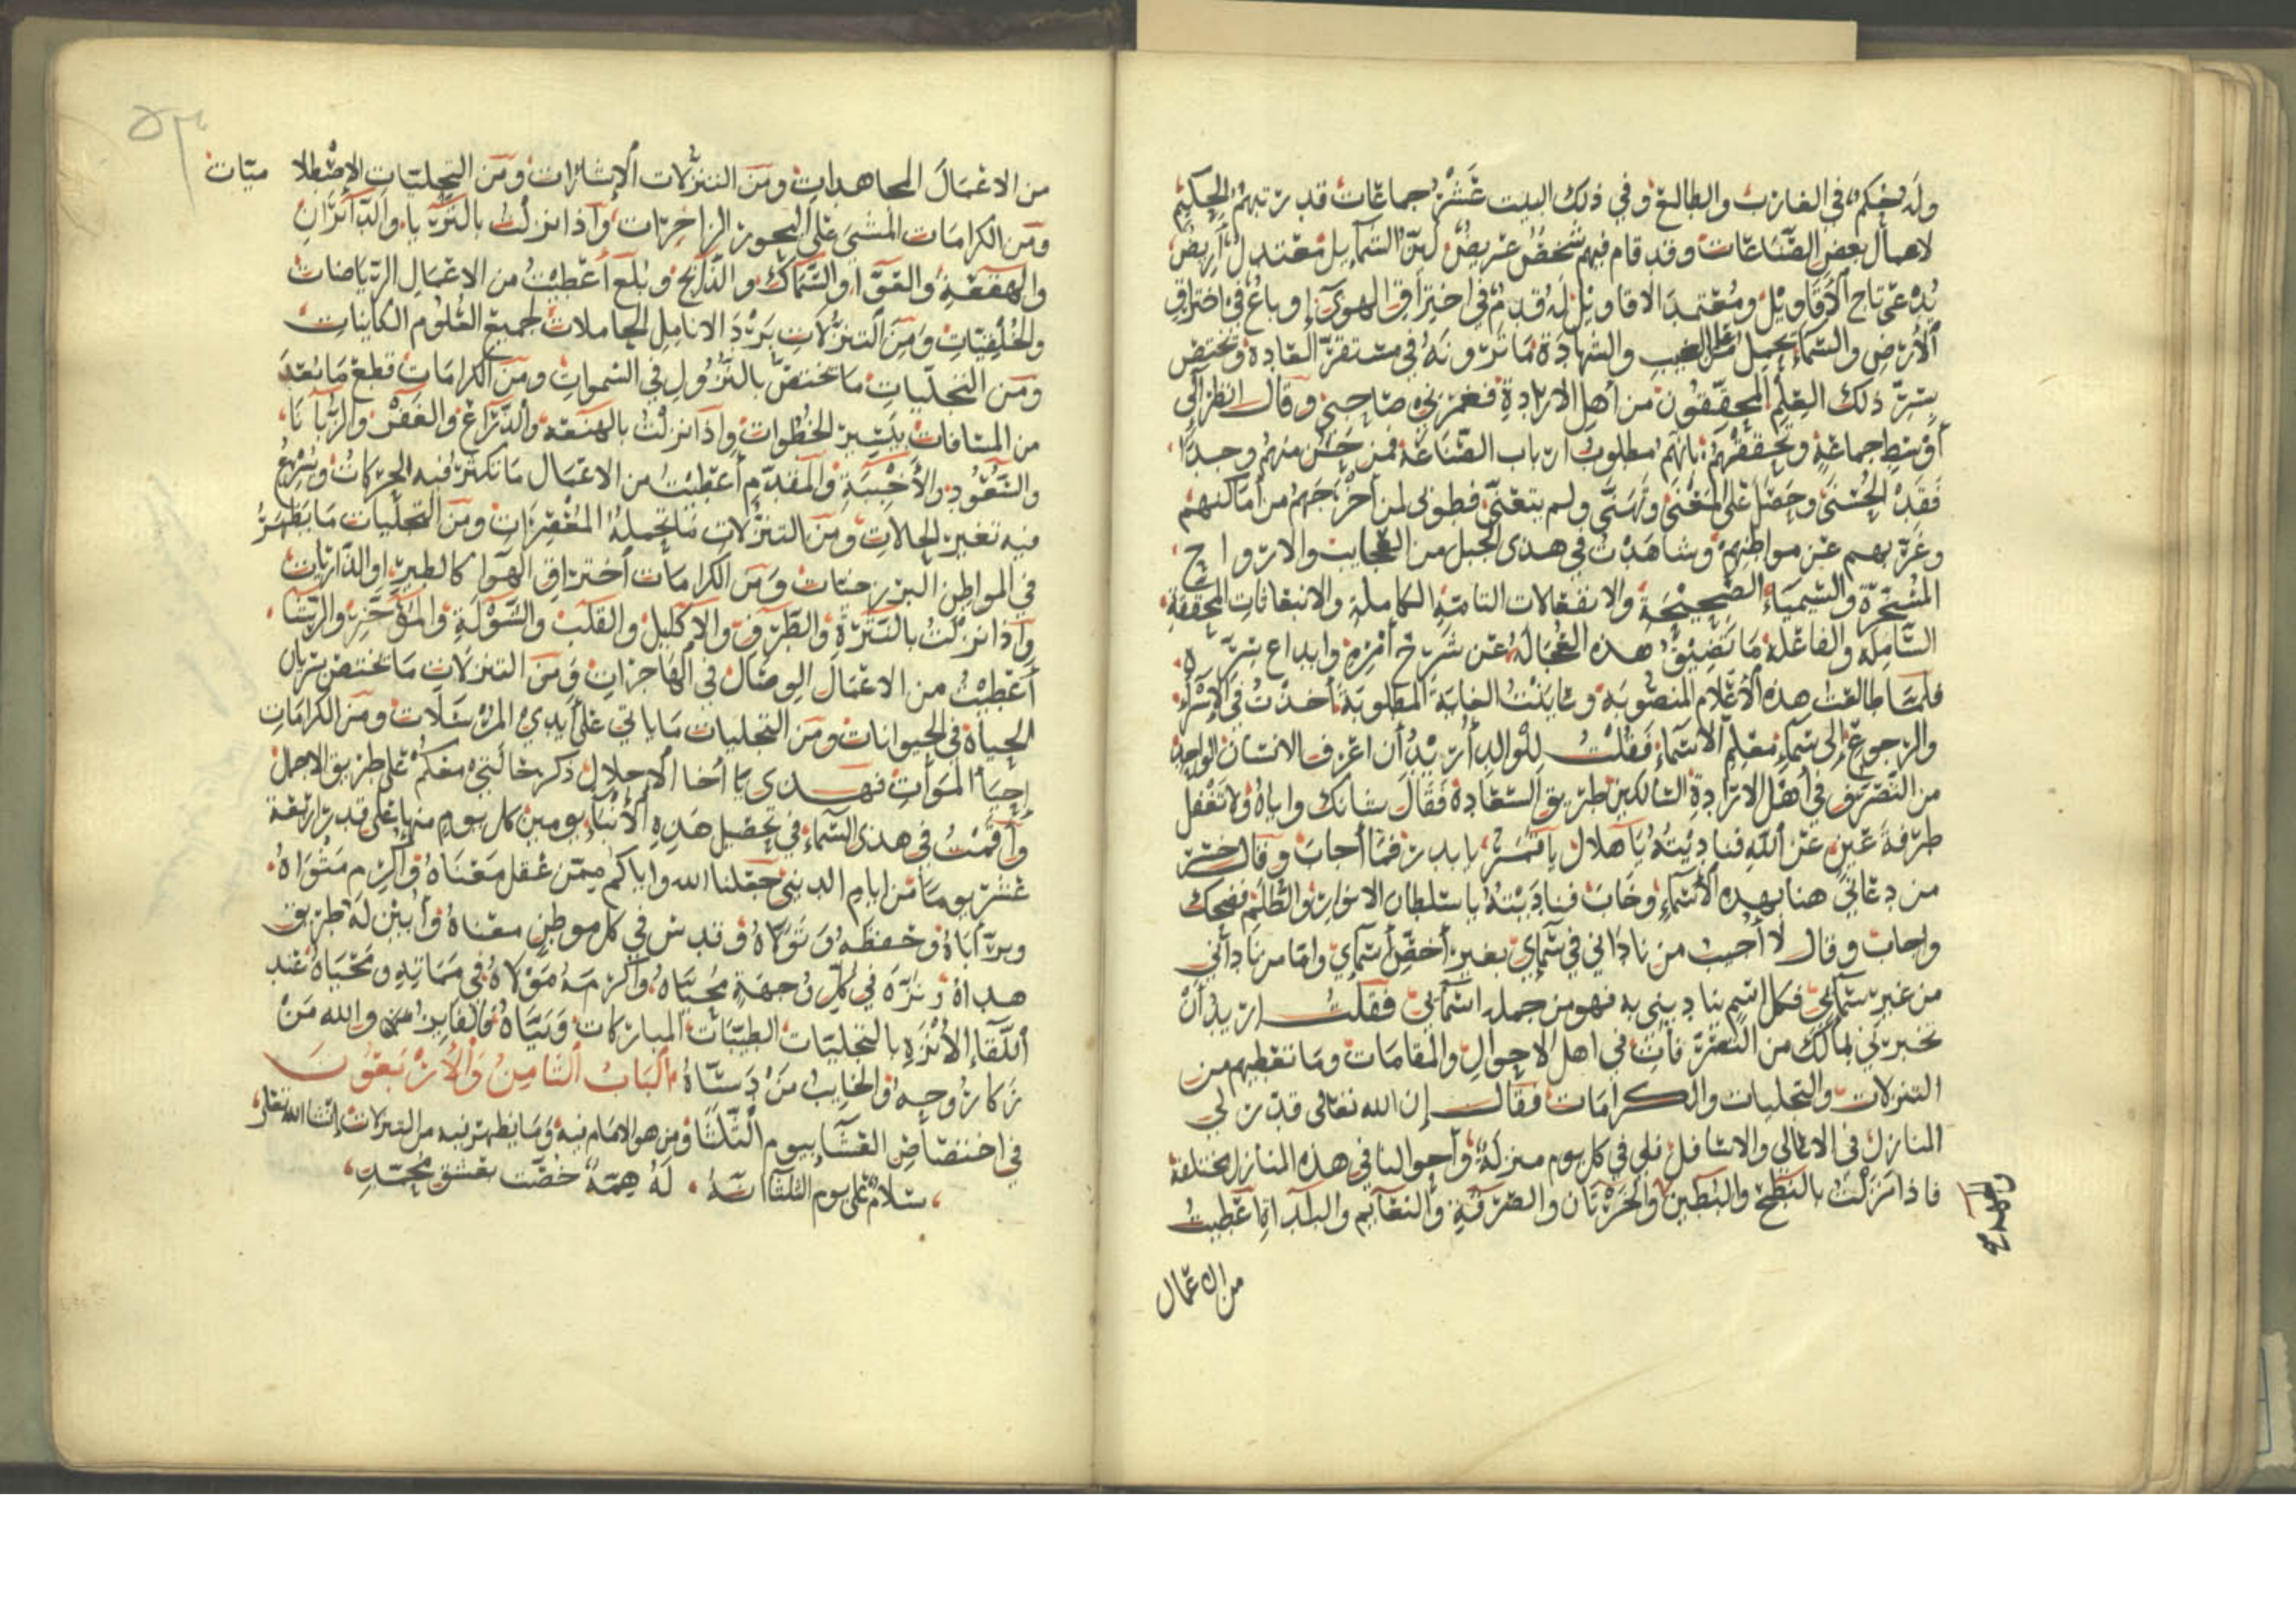 وله يحكم في الغارب والطالع وفي ذلك البيت عشر جماعات قد رتبهم الحكيم
لاعمال بعض الصناعات وقد قام فيهم شخص عريض لين الشمايل معتدل اريض
يدعى تاج الاقاويل ومعتمد الاقاويل له قدم في اختراق الهوآء وباع في اختراق
الارض والسماء يحمل من الغيب والشهادة ما ترونه في مستقر العادة ويختص
بسر ذلك العلم المحققون من أهل الارادة فغمزني صاحبي وقال انظر الى
أوسط جماعة وتحققهم بانهم مطلوب ارباب الصناعة فمن حسن منهم وجد
فقد الحسنى وحصل على المغنى وتهنى ولم يتعنى فطوبى لمن أخرجهم من أماكنهم
وغربهم عن مواطنهم وشاهدت في هذى الجبل من العجايب والارواح
المسخرة والسيمياء الصحيحة والانفعالات التامة الكاملة والانبعاثات المحققة
الشاملة والفاعلة ما تضيق هذه العجالة عن شرح أمره وابداع سره
فلما طالعت هذه الأعلام المنصوبة وعاينت الغاية المطلوبة أخذت في الإسراء
والرجوع إلى سماء معلم الاسماء فقلت للوالد أريد أن اعرف الانسان الواحد
من التصريف في أهل الارادة السالكين طريق السعادة فقال شانك واياه ولا تغفل
طرفة عين عن الله فناديته يا هلال يا قمر يا بدر فما أجاب وقال خسر
من دعاني هنا بهذه الأسماء وخاب فناديته يا سلطان الانوار والظلم فضحك
واجاب وقال لا أجيب من ناداني في سماي بغير أخص أسماي واما من ناداني
من غير سمائي فكل اسم يناديني به فهو من جملة اسمائي فقلت اريد أن
تخبرني بمالك من التصرفات في اهل الاحوال والمقامات وما تعطيهم من
التنزلات والتجليات والكرامات فقال إن الله تعالى قدر لي
المنازل في الاعالى والاسافل فلي في كل يوم منزلة وأحوالنا في هذه المنازل مختلفة
فاذا نزلت بالنطح والبطين والخرثان والصرفة والنعايم والبلد اعطيت
من الاعمال
من الاعمال المجاهدات ومن التنزلات الإشارات ومن التجليات الإصطلاميات
ومن الكرامات المشى على البحور الزاخرات واذا نزلت بالثريا والدبران
والهقعة والعوا والسماك والذابح وبلع أعطيت من الاعمال الرياضات
والخلفيات ومن التنزلات برد الانامل الحاملات لجميع العلوم الكاينات
ومن التجليات ما تختص بالنزول في السموات ومن الكرامات قطع ما بعد
من المسافات بيسير الخطوات واذا نزلت بالهنعة والذراع والغفر والزبانا
والسعود والأخبية والمقدم أعطيت من الاعمال ما تكثر فيه الحركات ويسرع
فيه تغير الحالات ومن التنزلات ما تحمله المعصرات ومن التجليات ما يظهر
في المواطن البرزخيات ومن الكرامات أختراق الهوا كالطير او الذاريات
واذا نزلت بالنثرة والطرف والاكليل والقلب والشولة والمؤخر والرشا
أعطيت من الاعمال الوصال في الهاجرات ومن التنزلات ما تختص بسريان
الحياة في الحيوانات ومن التجليات ما ياتي على أيدي المرسلات ومن الكرامات
إحيا الموات فهذى يا أخا الاجلال ذكر حالتي معكم على طريق الاجمال
وأقمت في هذى السماء في تحصيل هذه الأنباء يومين كل يوم منها على قدر اربعة
عشر يوما من ايام الدنيى جعلنا الله واياكم ممن عقل معناه وأكرم مثواه
وبر آباه وحفظه وتولاه وقدس في كل موطن معناه وأبين له طريق
هداه ونزه في كل وجهة محياه وأكرمه مولاه في مماته ومحياه عند
اللقاء الأنزه بالتجليات الطيبات المباركات وبياه فالفايز والله من
زكا روحه والخايب من دساه الباب الثامن والأربعون
في اختصاص العشآ بيوم الثلثا ومن هو الامام فيه وما يظهر فيه من التنزلات إن شاء الله تعالى
سلام على يوم الثلثا انه له همة خصت بعشق محمد